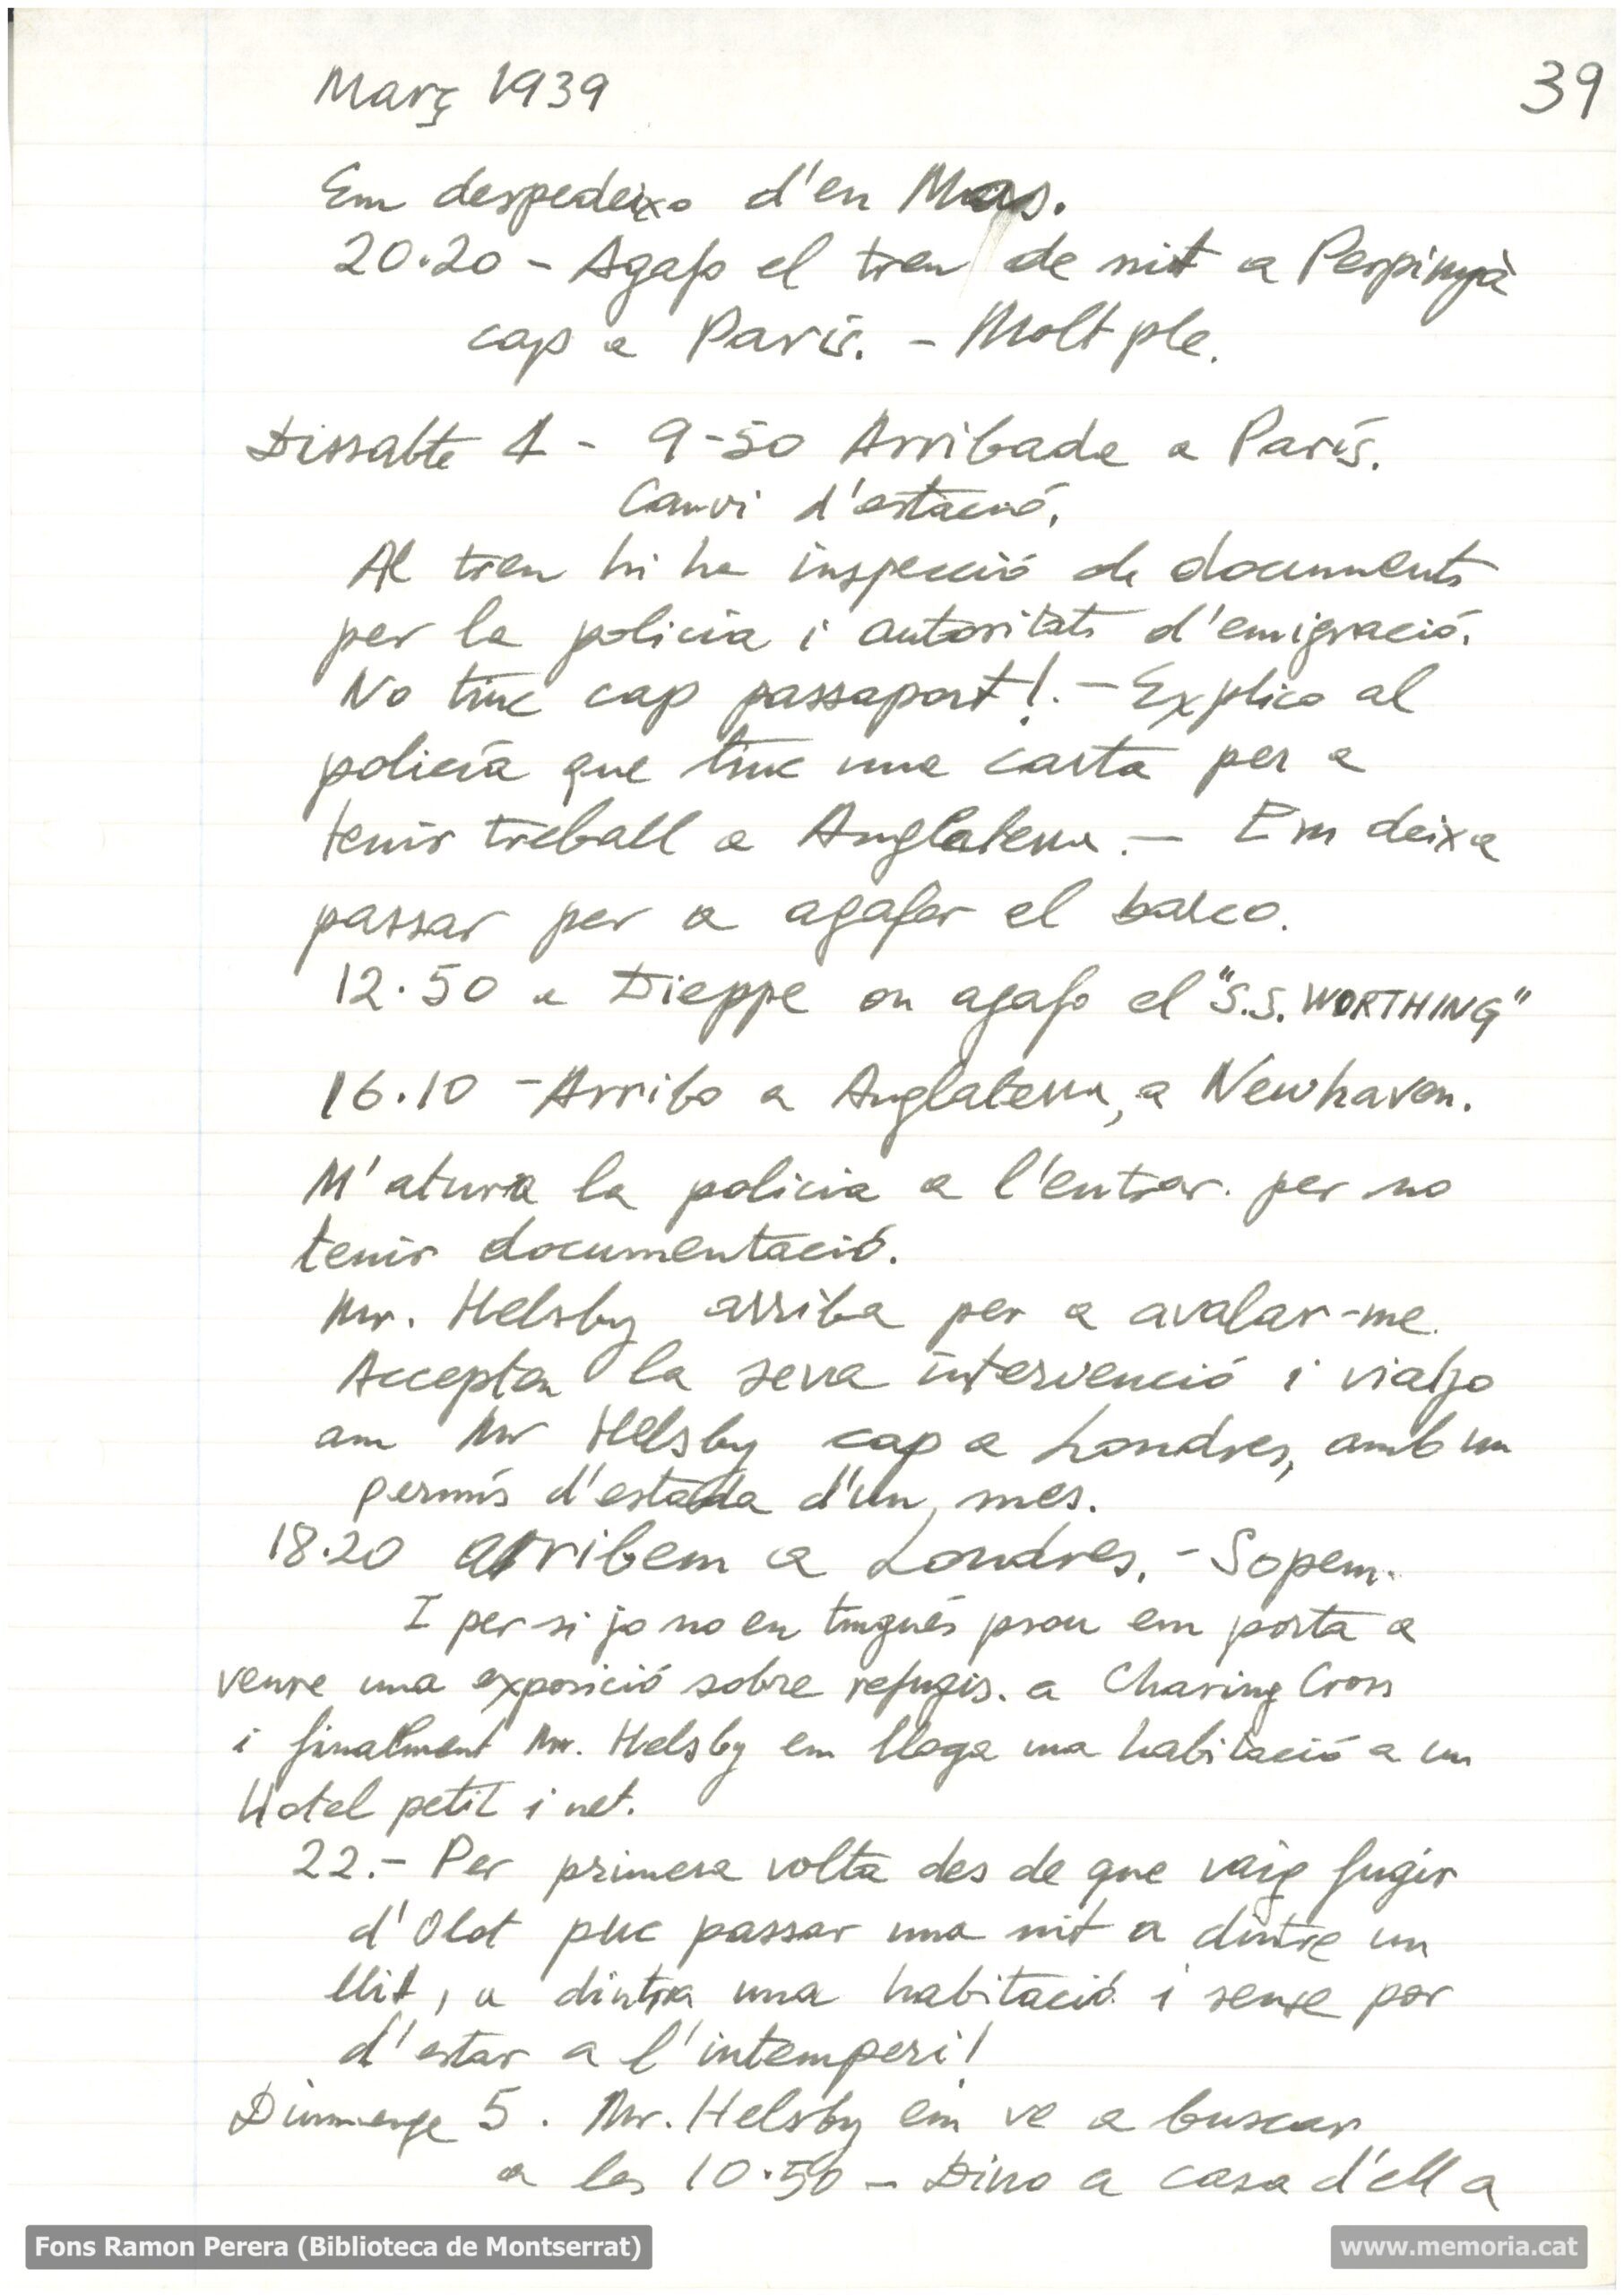 Març 1939
39
Em despedeixo d'en Mas.
20.20 - Agafo el tren de nit a Perpinyà
cap a París. - Molt ple.
Dissabte 4 - 9-50 Arribada a París.
Canvi d'estació.
Al tren hi ha inspecció de documents
per la policia i autoritats d'emigració.
No tinc cap passaport!. - Explico al
policia que tinc una carta per a
tenir treball a Anglaterra. - Em deixa
passar per a agafar el barco.
12.50 a Dieppe on agafo el "S.S. WORTHING"
16.10 - Arribo a Anglaterra, a Newhaven.
M'atura la policia a l'entrar. per no
tenir documentació.
Mr. Helsby arriba per a avalar-me.
Accepten la seva intervenció i viatjo
am Mr Helsby cap a Londres, amb un
permís d'estada d'un mes.
18.20 arribem a Londres. - Sopem.
I per si jo no en tingués prou em porta a
veure una exposició sobre refugis. a Charing Cross
i finalment Mr. Helsby em lloga una habitació a un
Hotel petit i net.
22.- Per primera volta des de que vaig fugir
d'Olot puc passar una nit a dintre un
llit, a dintra una habitació i sense por
d'estar a l'intemperi!
Diumenge 5. Mr. Helsby em ve a buscar
a les 10.50 - Dino a casa d'ell a
Fons Ramon Perera (Biblioteca de Montserrat)
www.memoria.cat